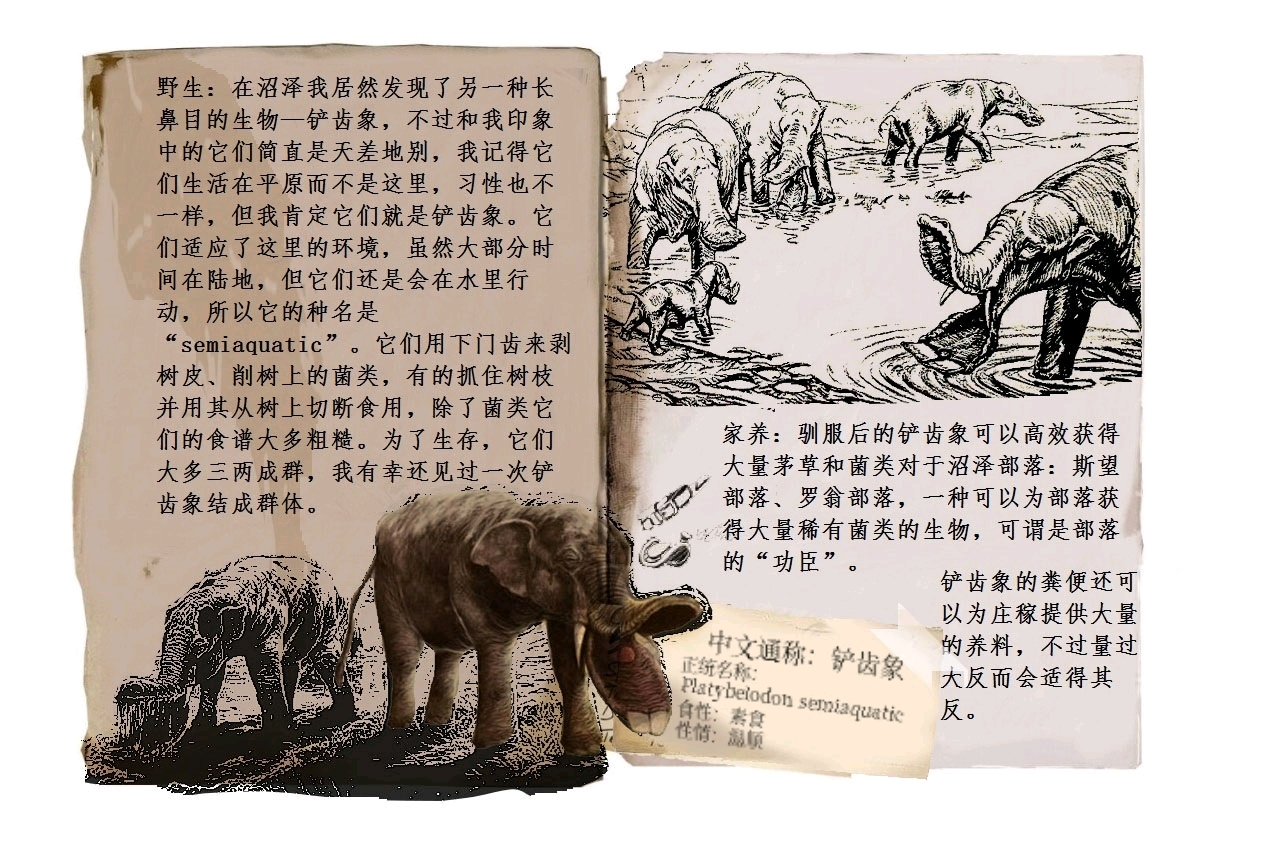 野生：在沼泽我居然发现了另一种长
鼻目的生物—铲齿象，不过和我印象
中的它们简直是天差地别，我记得它
们生活在平原而不是这里，习性也不
一样，但我肯定它们就是铲齿象。它
们适应了这里的环境，虽然大部分时
间在陆地，但它们还是会在水里行
动，所以它的种名是
“semiaquatic”。它们用下门齿来剥
树皮、削树上的菌类，有的抓住树枝
并用其从树上切断食用，除了菌类它
们的食谱大多粗糙。为了生存，它们
大多三两成群，我有幸还见过一次铲
齿象结成群体。
家养：驯服后的铲齿象可以高效获得
大量茅草和菌类对于沼泽部落：斯望
部落、罗翁部落，一种可以为部落获
得大量稀有菌类的生物，可谓是部落
的“功臣”。
铲齿象的粪便还可
以为庄稼提供大量
的养料，不过量过
大反而会适得其
反。
中文通称：铲齿象
正统名称：
Platybelodon semiaquatic
食性：素食
性情：温顺